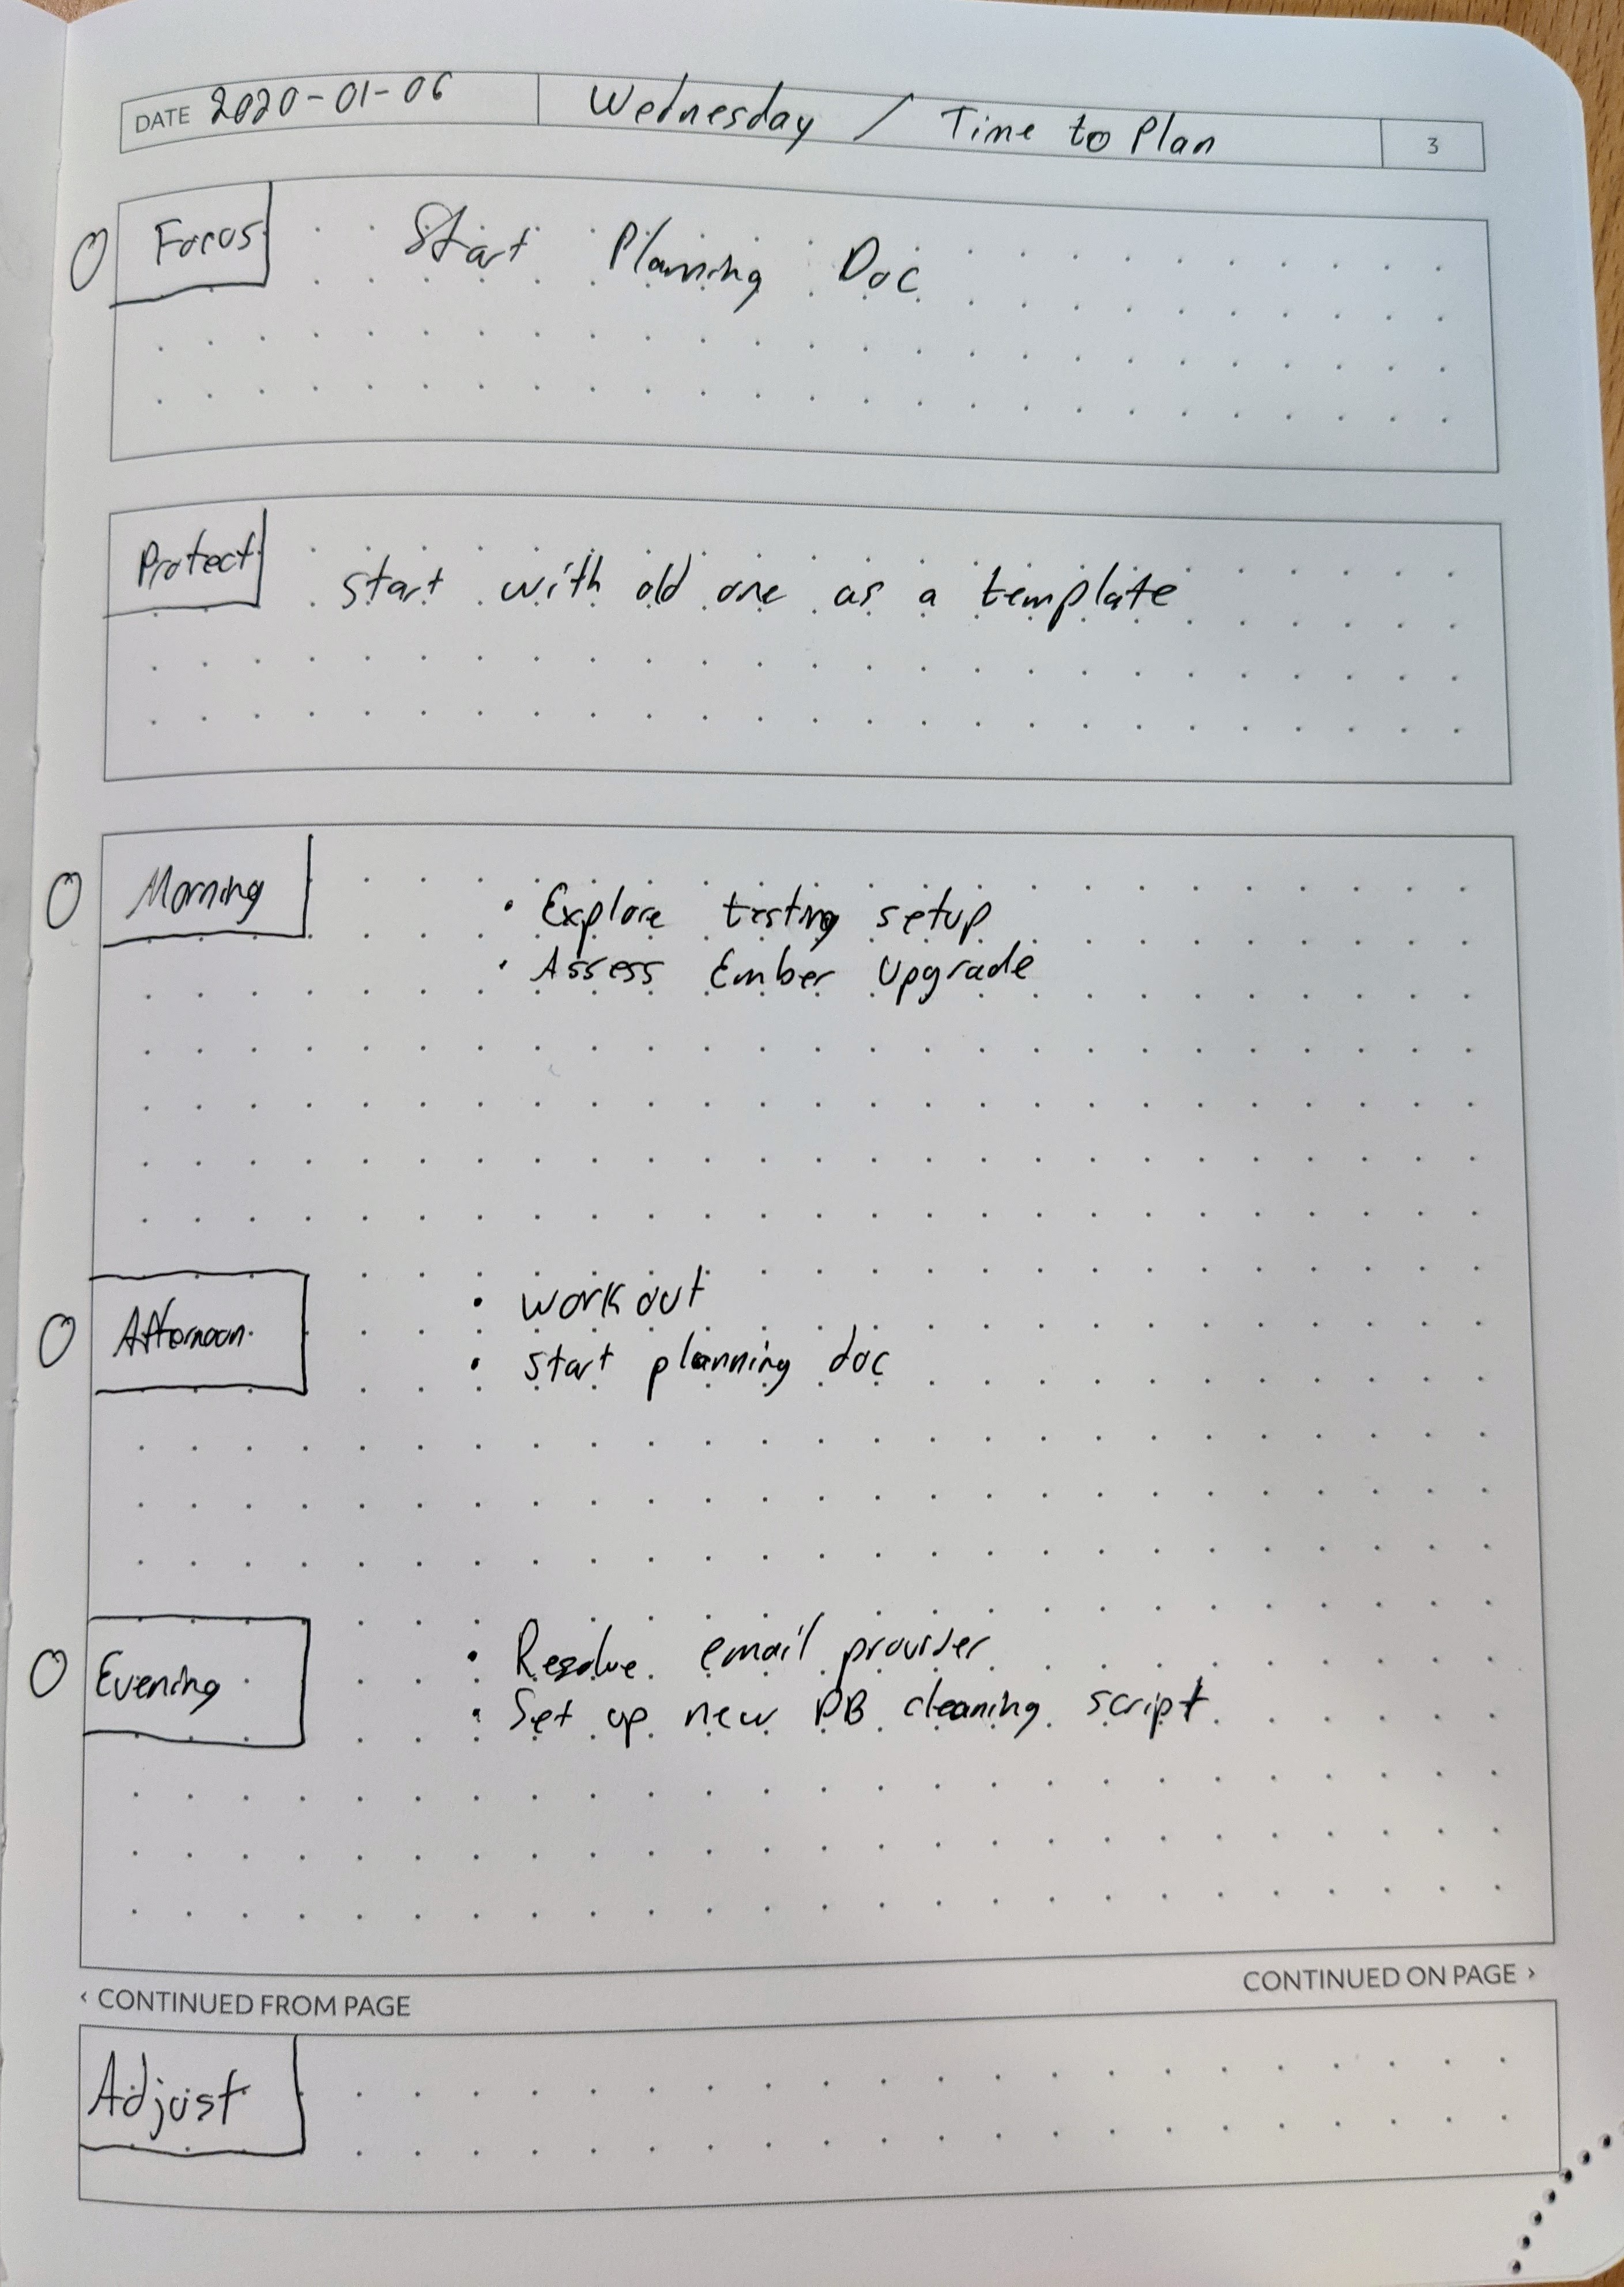 DATE 2020-01-06 Wednesday / Time to Plan 3
Focus Start Planning Doc
Protect start with old one as a template
Morning • Explore testing setup
• Assess Ember Upgrade
Afternoon • workout
• start planning doc
Evening • Resolve email provider
• Set up new DB cleaning script
‹ CONTINUED FROM PAGE
CONTINUED ON PAGE ›
Adjust